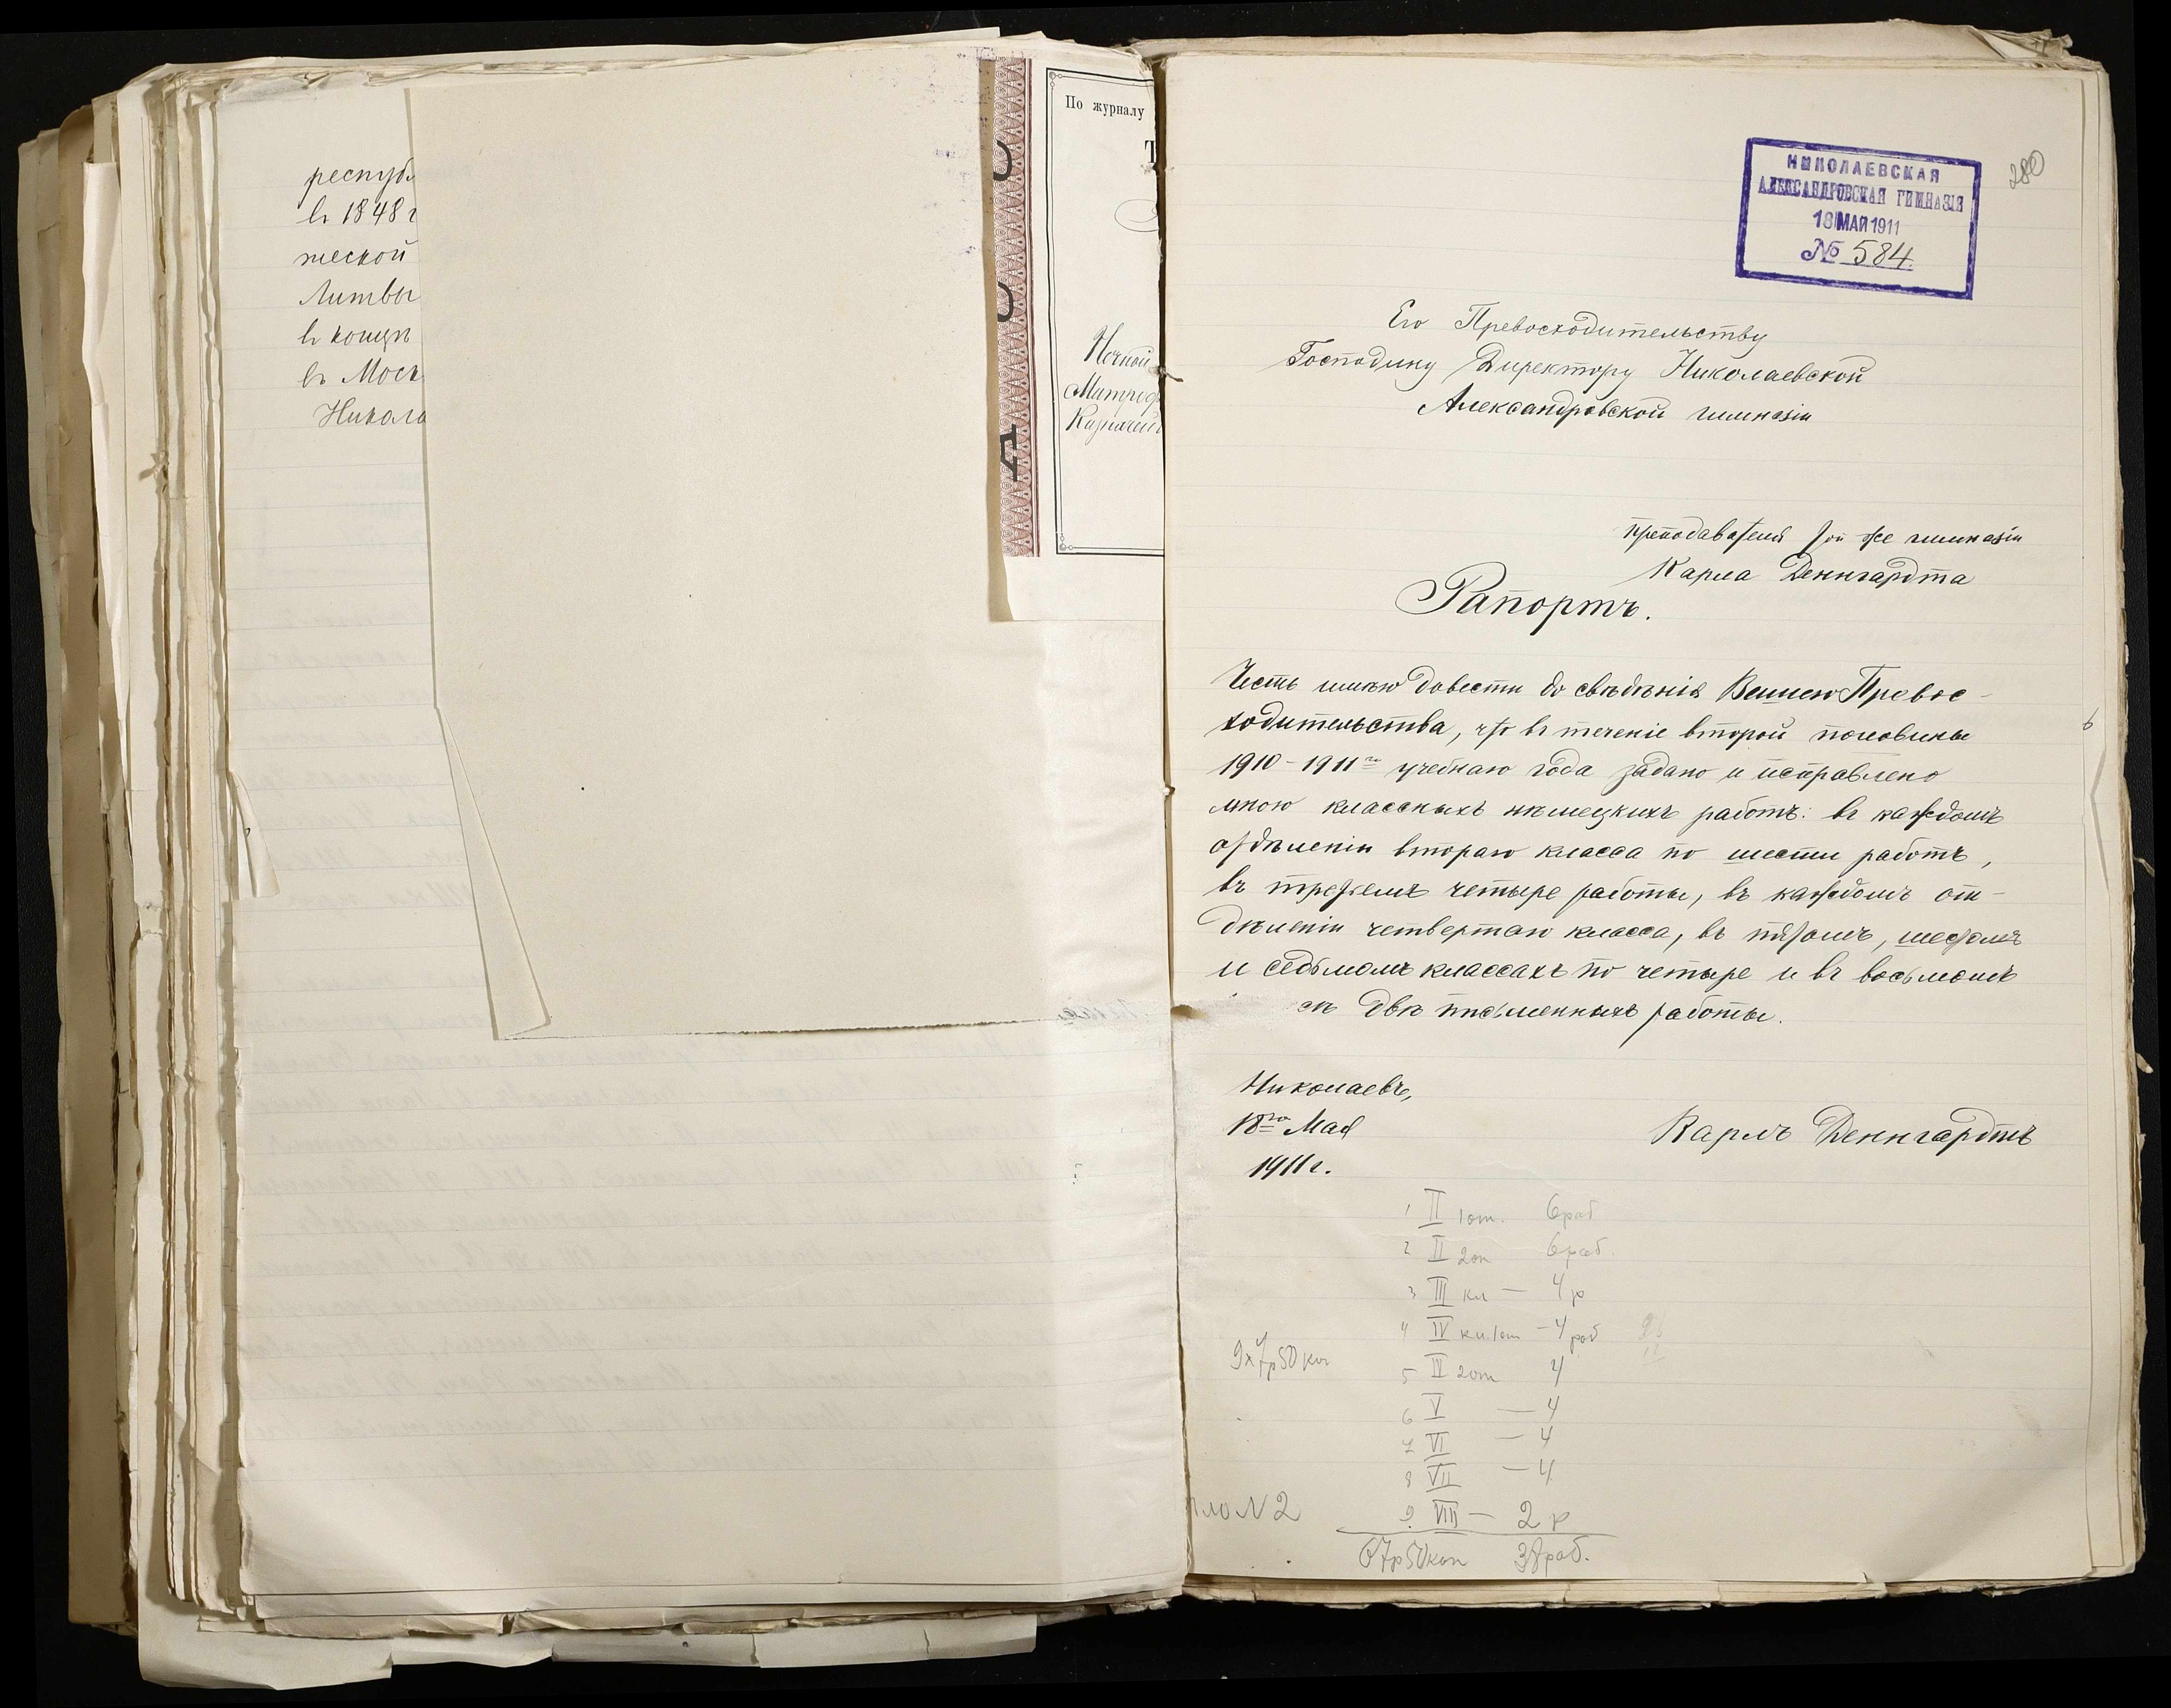 республ
въ 1848 г
ческой
Литвы
въ концѣ
въ Моск
Никола
По журналу
Т
Ночной
Митроф
Казначей
НИКОЛАЕВСКАЯ
АЛЕКСАНДРОВСКАЯ ГИМНАЗІЯ
18 МАЯ 1911
№ 584.
280
Его Превосходительству
Господину Директору Николаевской
Александровской гимназіи
преподавателя той же гимназіи
Карла Деннгардта
Рапортъ.
Честь имѣю довести до свѣдѣнія Вашего Превос-
ходительства, что въ теченіе второй половины
1910-1911го учебнаго года задано и исправлено
мною классныхъ нѣмецкихъ работъ: въ каждомъ
отдѣленіи втораго класса по шести работъ,
въ третьемъ четыре работы, въ каждомъ от-
дѣленіи четвертаго класса, въ пятомъ, шестомъ
и седьмомъ классахъ по четыре и въ восьмомъ
двѣ письменныхъ работы.
Николаевъ,
18го Мая
1911 г.
Карлъ Деннгардтъ
1 II 1 от. 6 раб
2 II 2 от 6 раб.
3 III кл — 4 р
4 IV кл. 1 от — 4 раб
9 x 7 р 50 коп
5 IV 2 от 4
6 V — 4
7 VI — 4
8 VII — 4
N 2
9. VIII — 2 р
67 р 50 коп 38 раб.